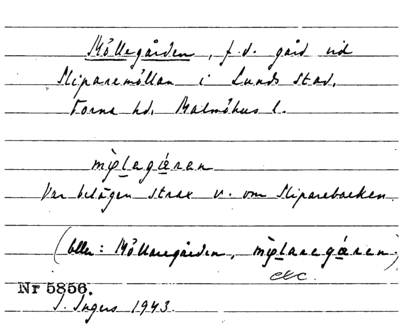 Möllegården, f.d. gård vid
Sliparemöllan i Lunds stad,
Torna hd, Malmöhus l.
mø̀lagáren
Var belägen strax v. om Sliparebacken.
(eller: Möllaregården, mø̀laregáren)
etc.
Nr 5856.
I. Ingers 1943.